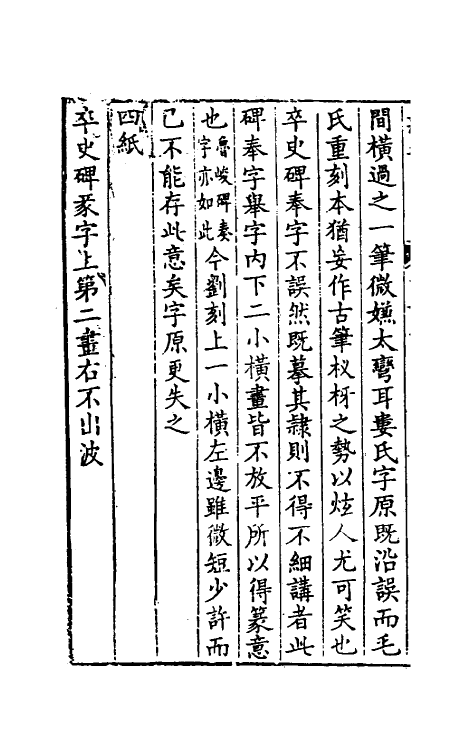 間橫過之一筆微嫌太彎耳婁氏字原既沿誤而毛
氏重刻本猶妄作古筆杈枒之勢以炫人尤可笑也
卒史碑奉字不誤然既摹其隸則不得不細講者此
碑奉字舉字內下二小橫畫皆不放平所以得篆意
也魯峻碑奏字亦如此今劉刻上一小橫左邊雖微短少許而
已不能存此意矣字原更失之
四紙
卒史碑彖字上第二畫右不出波